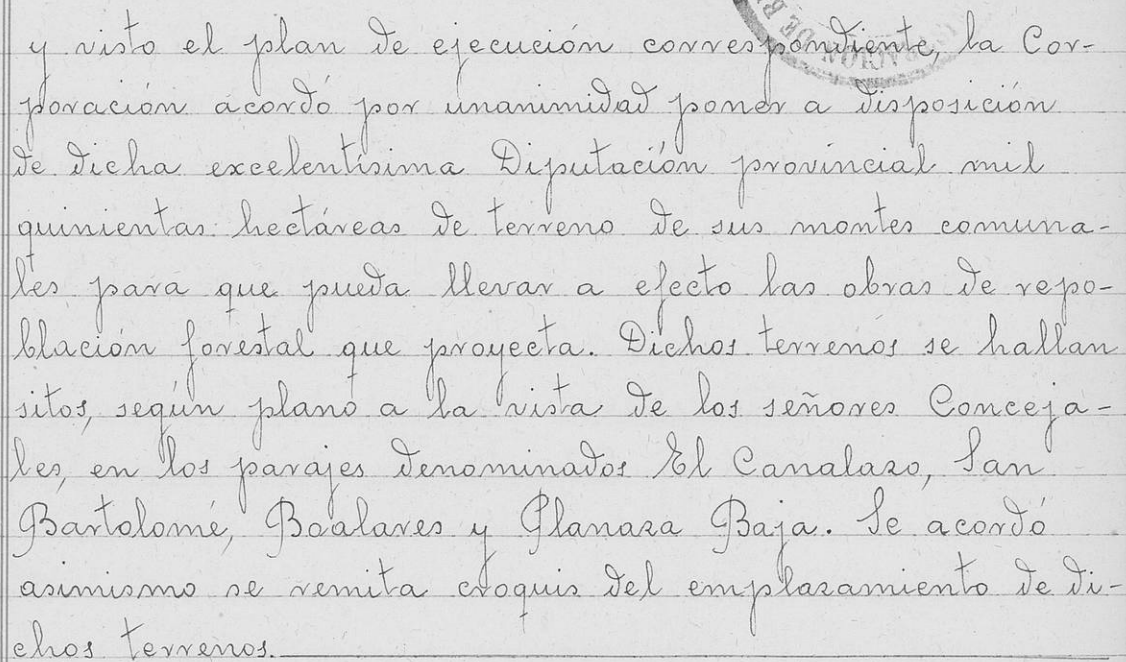 y visto el plan de ejecución correspondiente, la Cor-
poración acordó por unanimidad poner a disposición
de dicha excelentísima Diputación provincial mil
quinientas hectáreas de terreno de sus montes comuna-
les para que pueda llevar a efecto las obras de repo-
blación forestal que proyecta. Dichos terrenos se hallan
sitos, según plano a la vista de los señores Conceja-
les, en los parajes denominados El Canalazo, San
Bartolomé, Boalares y Planaza Baja. Se acordó
asimismo se remita croquis del emplazamiento de di-
chos terrenos.